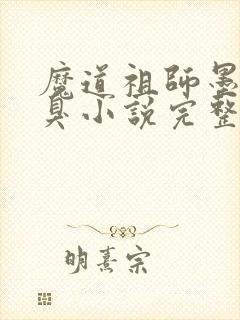 魔道祖師墨
臭小說完整
明熹宗